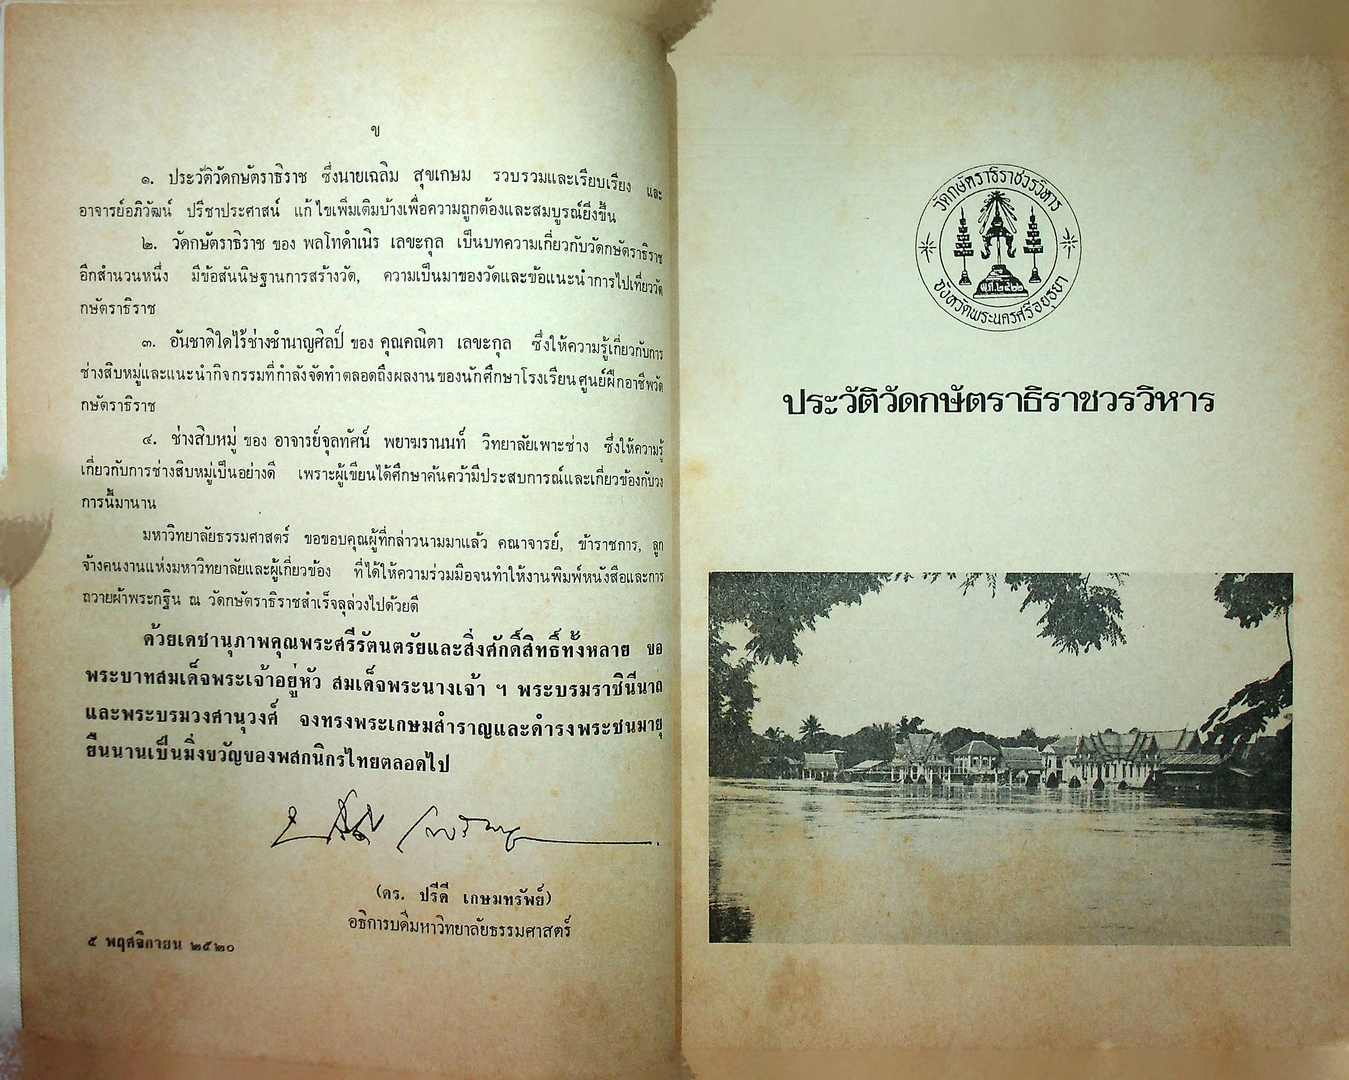 ข
๑. ประวัติวัดกษัตราธิราช ซึ่งนายเฉลิม สุขเกษม รวบรวมและเรียบเรียง และ
อาจารย์อภิวัฒน์ ปรีชาประศาสน์ แก้ไขเพิ่มเติมบ้างเพื่อความถูกต้องและสมบูรณ์ยิ่งขึ้น
๒. วัดกษัตราธิราช ของ พลโทดำเนิร เลขะกุล เป็นบทความเกี่ยวกับวัดกษัตราธิราช
อีกสำนวนหนึ่ง มีข้อสันนิษฐานการสร้างวัด, ความเป็นมาของวัดและข้อแนะนำการไปเที่ยววัด
กษัตราธิราช
๓. อันชาติใดไร้ช่างชำนาญศิลป์ ของ คุณคณิตา เลขะกุล ซึ่งให้ความรู้เกี่ยวกับการ
ช่างสิบหมู่และแนะนำกิจกรรมที่กำลังจัดทำตลอดถึงผลงานของนักศึกษาโรงเรียนศูนย์ฝึกอาชีพวัด
กษัตราธิราช
๔. ช่างสิบหมู่ ของ อาจารย์จุลทัศน์ พยาฆรานนท์ วิทยาลัยเพาะช่าง ซึ่งให้ความรู้
เกี่ยวกับการช่างสิบหมู่เป็นอย่างดี เพราะผู้เขียนได้ศึกษาค้นคว้ามีประสบการณ์และเกี่ยวข้องกับวง
การนี้มานาน
มหาวิทยาลัยธรรมศาสตร์ ขอขอบคุณผู้ที่กล่าวนามมาแล้ว คณาจารย์, ข้าราชการ, ลูก
จ้างคนงานแห่งมหาวิทยาลัยและผู้เกี่ยวข้อง ที่ได้ให้ความร่วมมือจนทำให้งานพิมพ์หนังสือและการ
ถวายผ้าพระกฐิน ณ วัดกษัตราธิราชสำเร็จลุล่วงไปด้วยดี
ด้วยเดชานุภาพคุณพระศรีรัตนตรัยและสิ่งศักดิ์สิทธิ์ทั้งหลาย ขอ
พระบาทสมเด็จพระเจ้าอยู่หัว สมเด็จพระนางเจ้า ฯ พระบรมราชินีนาถ
และพระบรมวงศานุวงศ์ จงทรงพระเกษมสำราญและดำรงพระชนมายุ
ยืนนานเป็นมิ่งขวัญของพสกนิกรไทยตลอดไป
(ดร. ปรีดี เกษมทรัพย์)
อธิการบดีมหาวิทยาลัยธรรมศาสตร์
๕ พฤศจิกายน ๒๕๒๐
วัดกษัตราธิราชวรวิหาร
พ.ศ.๒๕๒๒
จังหวัดพระนครศรีอยุธยา
ประวัติวัดกษัตราธิราชวรวิหาร